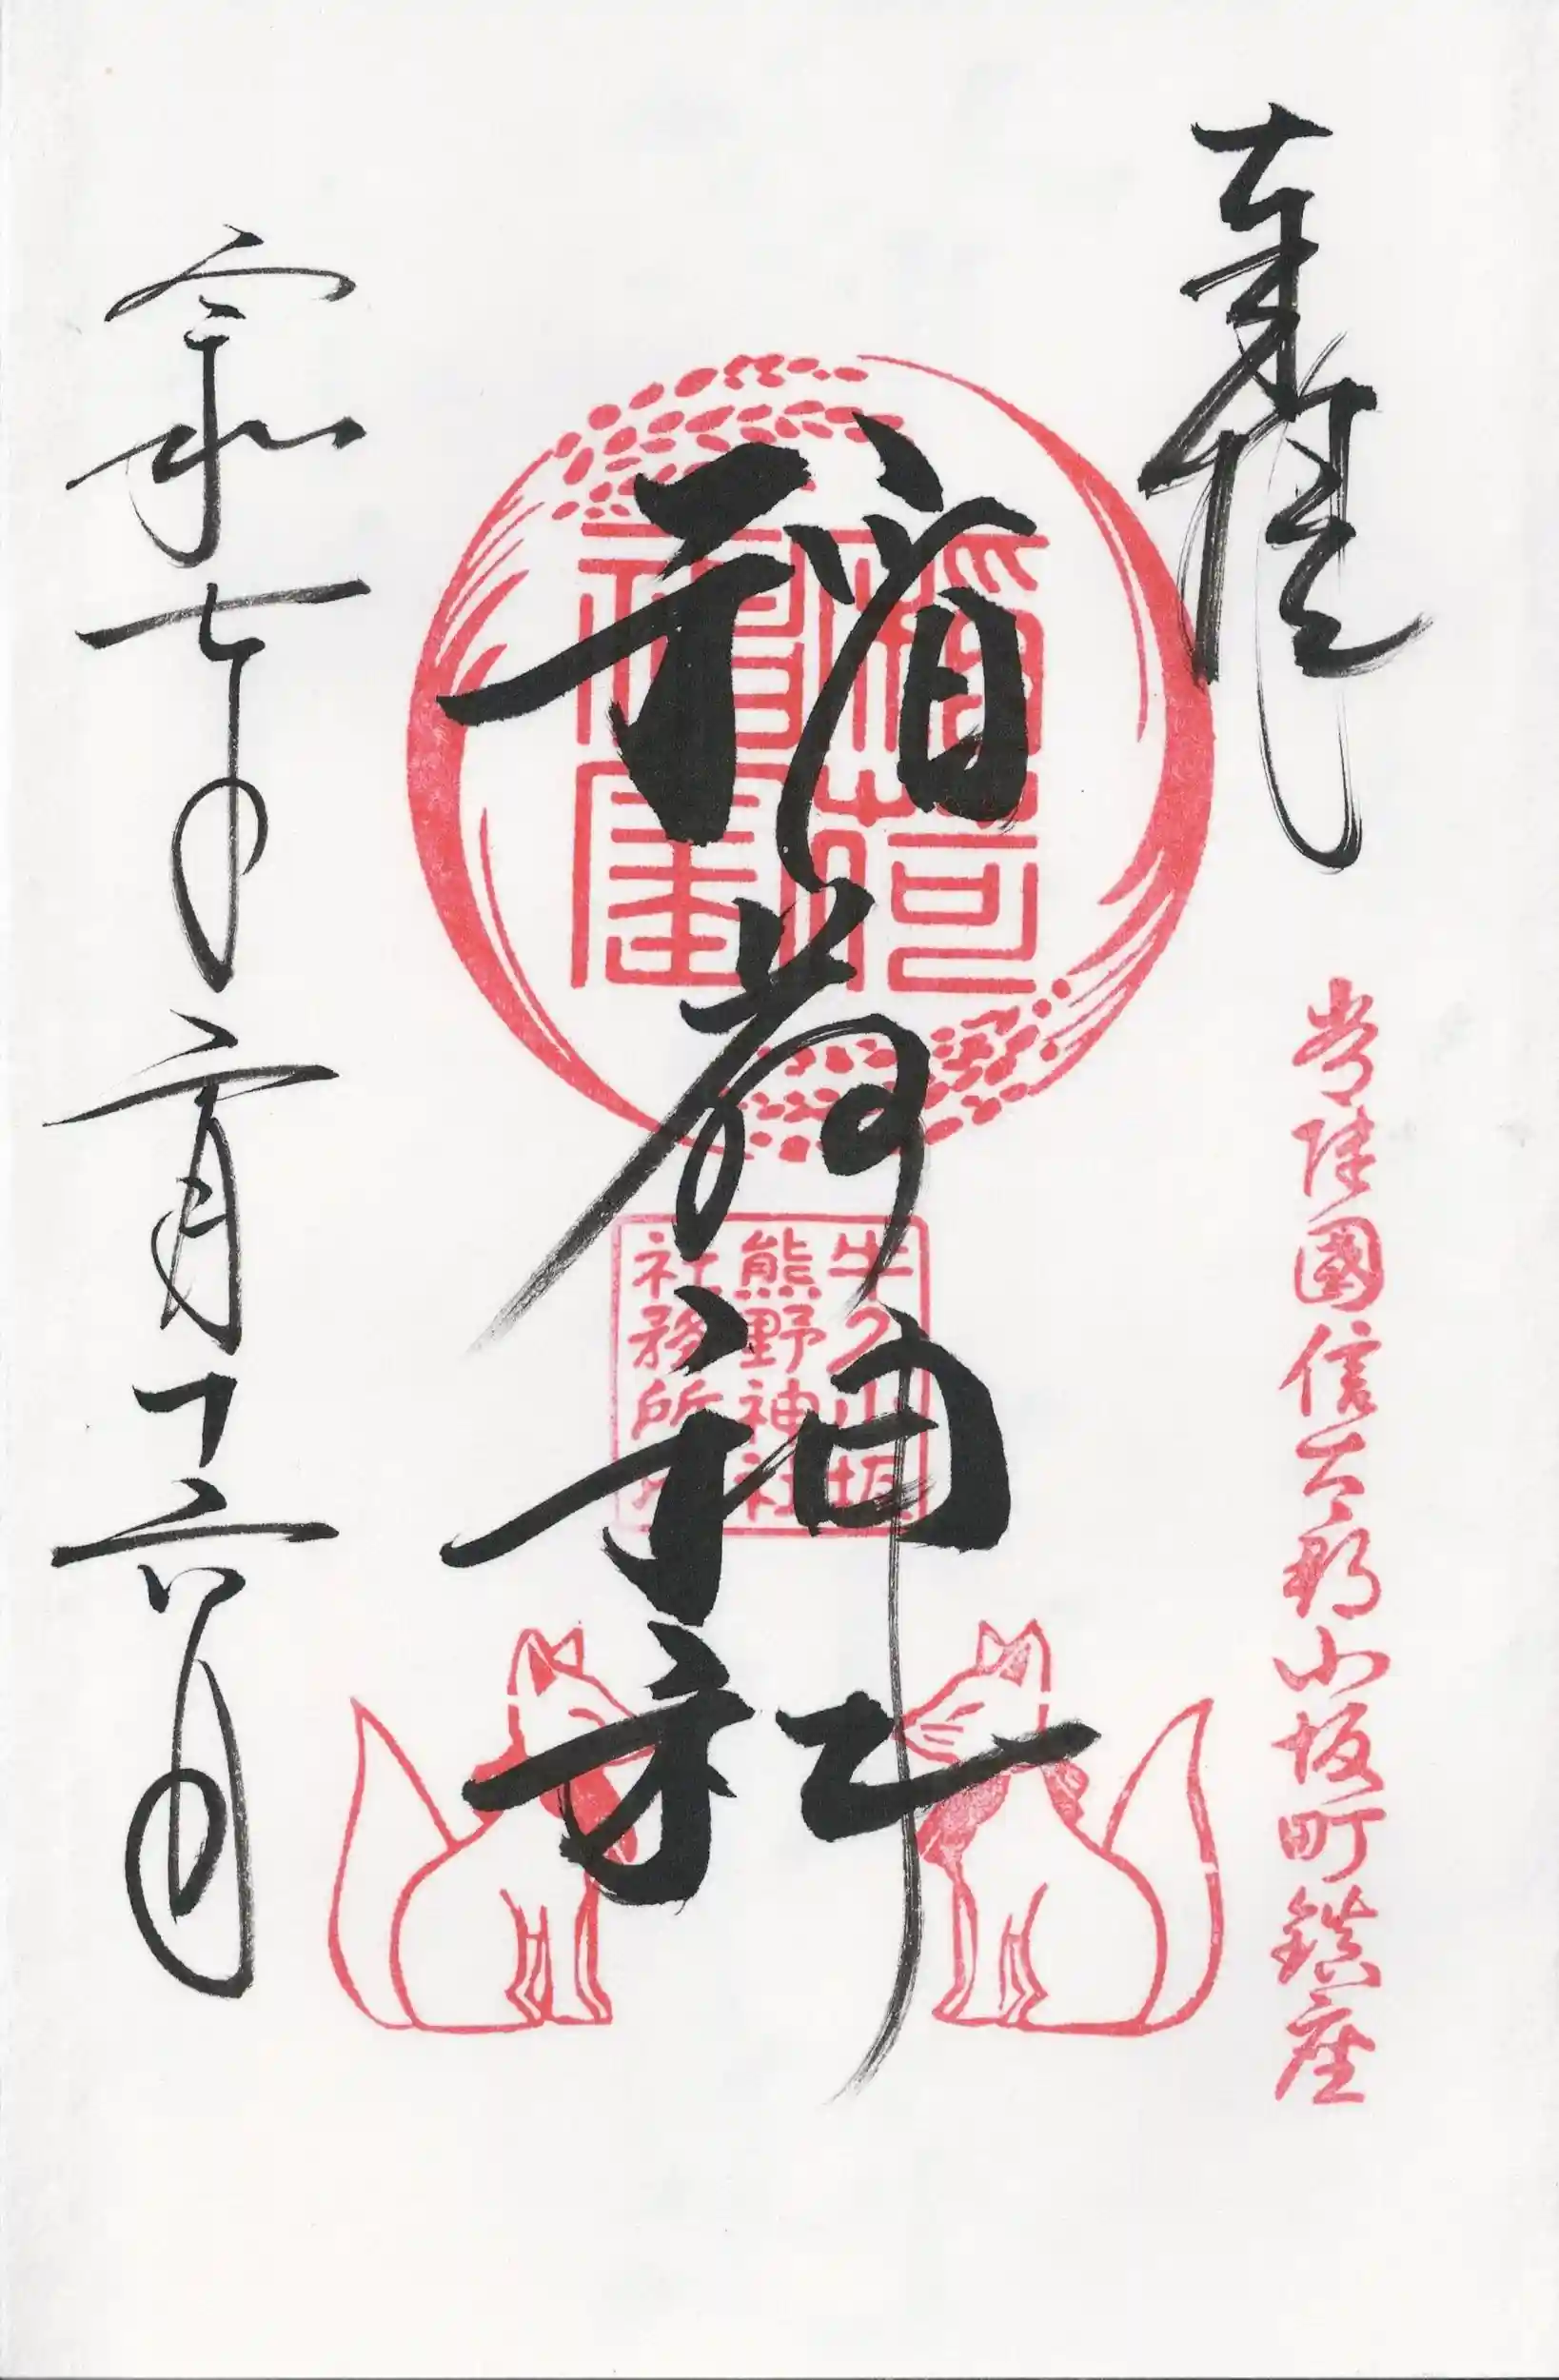 奉拝
常陸國信太郡小坂町鎮座
稲荷神社
稲荷
牛久小坂
熊野神社
社務所印
令和七年二月十六日